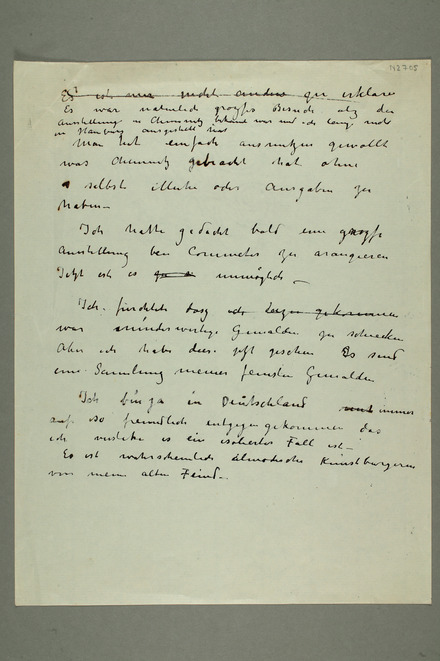 N2705
Es ist nur nicht anders zu erklären
Es war natürlich groszes Besuch als der
Ausstellung in Chemnitz bekannt war und ich lange nicht
in Hamburg ausgestellt hat
Man hat einfach ausnutzen gewollt
was Chemnitz gebracht hat ohne
selbst oder Ausgaben zu
haben –
Ich hatte gedacht bald eine grosze
Ausstellung bei Commeter zu arangieren
Jetzt ist es unmöglich –
Ich fürchtete dasz ich gekommen
war minderwertige Gemälden zu schicken
Aber ich habe diese jetzt gesehen Es sind
eine Sammlung meiner feinsten Gemälden
Ich bin ja in Deutschland immer
auf so freundlich entgegengekommen das
ich verstehe es ein isolierter Fall ist –
Es ist wahrscheinlich
von meine alten Feind –